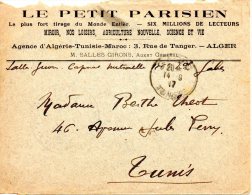 LE PETIT PARISIEN
Le plus fort tirage du Monde Entier. — SIX MILLIONS DE LECTEURS
MIROIR, NOS LOISIRS, AGRICULTURE NOUVELLE, SCIENCE ET VIE
Agence d'Algérie-Tunisie-Maroc : 3, Rue de Tanger. — ALGER
M. SALLES GIRONS, AGENT GÉNÉRAL
Madame Berthe
46, Avenue Jules Ferry
Tunis